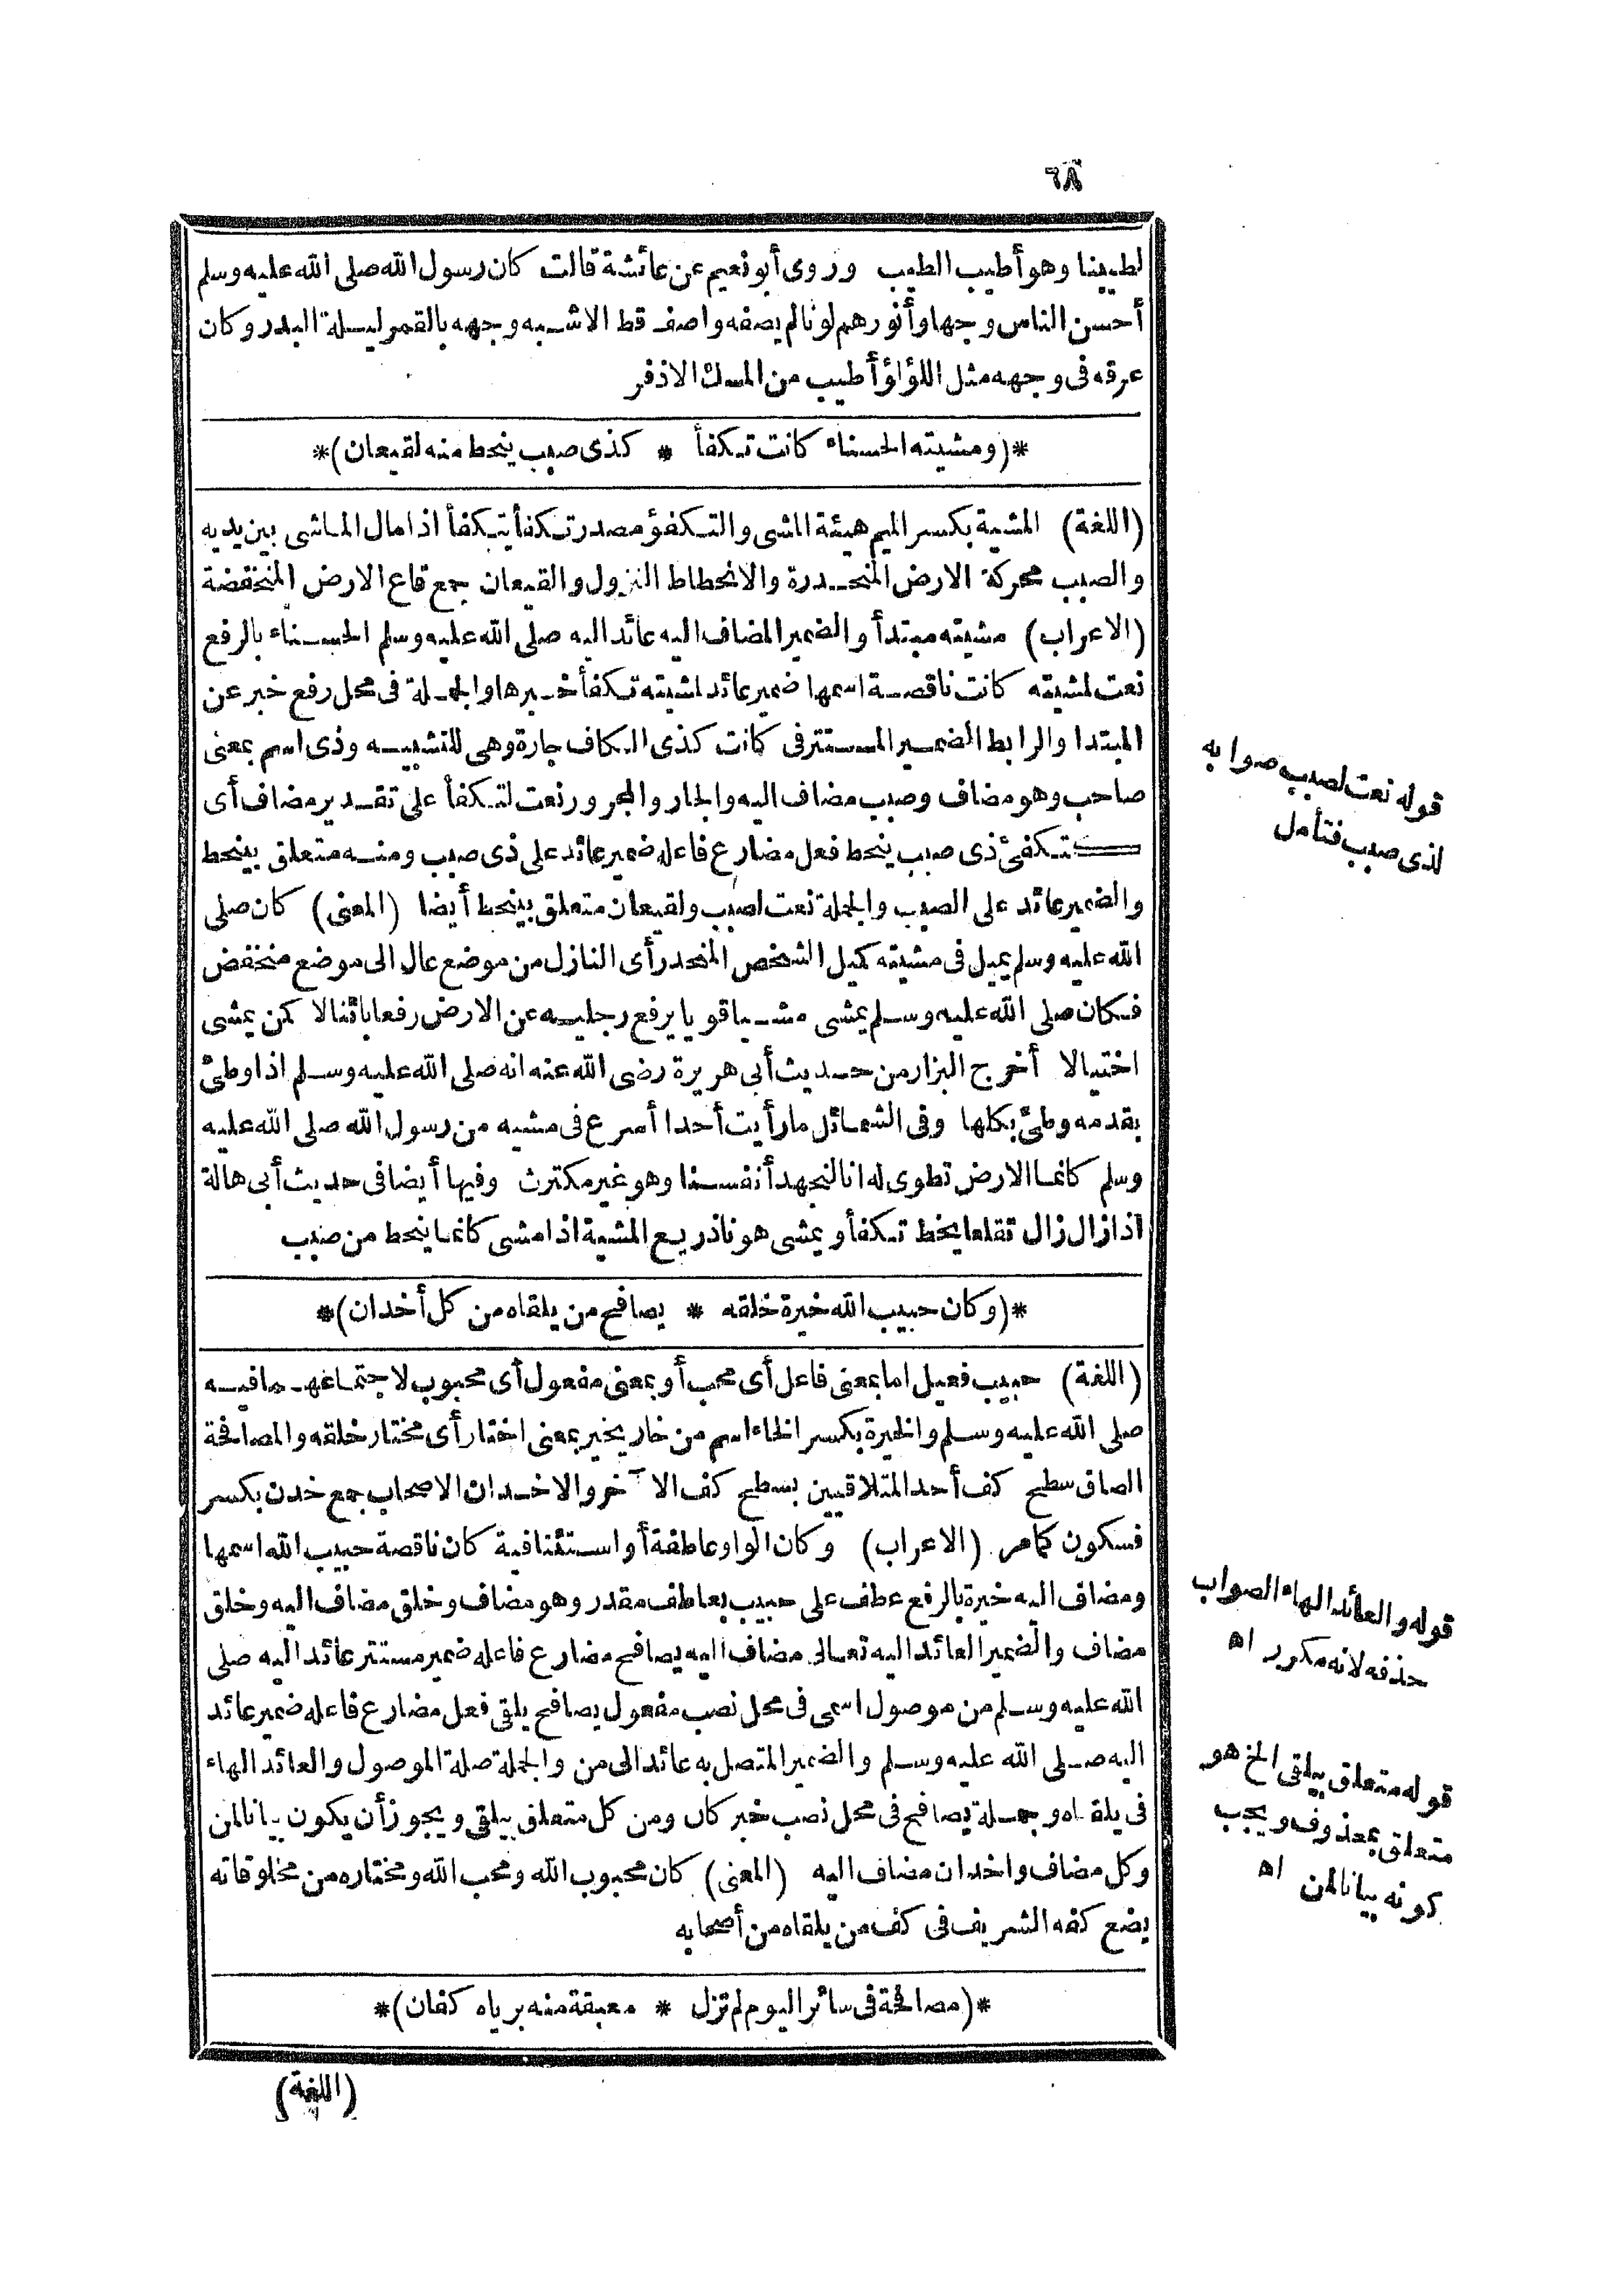 ٦٨
لطيبنا وهو أطيب الطيب وروى أبو نعيم عن عائشة قالت كان رسول الله صلى الله عليه وسلم
أحسن الناس وجها وأنورهم لونا لم يصفه واصف قط الا شبه وجهه بالقمر ليلة البدر وكان
عرقه فى وجهه مثل اللؤلؤ أطيب من المسك الاذفر
*(ومشيته الحسناء كانت تكفأ * كذى صبب ينحط منه لقيعان)*
(اللغة) المشية بكسر الميم هيئة المشى والتكفؤ مصدر تكفأ يتكفأ اذا مال الماشى بين يديه
والصبب محركة الارض المنحدرة والانحطاط النزول والقيعان جمع قاع الارض المنخفضة
(الاعراب) مشيته مبتدأ والضمير المضاف اليه عائد اليه صلى الله عليه وسلم الحسناء بالرفع
نعت لمشيته كانت ناقصة اسمها ضمير عائد لمشيته تكفأ خبرها والجملة فى محل رفع خبر عن
المبتدا والرابط الضمير المستتر فى كانت كذى الكاف جارة وهى للتشبيه وذى اسم بمعنى
صاحب وهو مضاف وصبب مضاف اليه والجار والمجرور نعت لتكفأ على تقدير مضاف أى
كتكفئ ذى صبب ينحط فعل مضارع فاعله ضمير عائد على ذى صبب ومنه متعلق بينحط
والضمير عائد على الصبب والجملة نعت لصبب ولقيعان متعلق بينحط أيضا (المعنى) كان صلى
الله عليه وسلم يميل فى مشيته كميل الشخص المنحدر أى النازل من موضع عال الى موضع منخفض
فكان صلى الله عليه وسلم يمشى مشيا قويا يرفع رجليه عن الارض رفعا بائنا لا كمن يمشى
اختيالا أخرج البزار من حديث أبى هريرة رضى الله عنه انه صلى الله عليه وسلم اذا وطئ
بقدمه وطئ بكلها وفى الشمائل ما رأيت أحدا أسرع فى مشيه من رسول الله صلى الله عليه
وسلم كأنما الارض تطوى له انا لنجهد أنفسنا وهو غير مكترث وفيها أيضا فى حديث أبى هالة
اذا زال زال تقلعا يخط تكفأ ويمشى هونا ذريع المشية اذا مشى كانما ينحط من صبب
*(وكان حبيب الله خيرة خلقه * يصافح من يلقاه من كل أخدان)*
(اللغة) حبيب فعيل اما بمعنى فاعل أى محب أو بمعنى مفعول أى محبوب لاجتماعهما فيه
صلى الله عليه وسلم والخيرة بكسر الخاء اسم من خار يخير بمعنى اختار أى مختار خلقه والمصافحة
الصاق سطح كف أحد المتلاقيين بسطح كف الآخر والاخدان الاصحاب جمع خدن بكسر
فسكون كما مر (الاعراب) وكان الواو عاطفة أو استئنافية كان ناقصة حبيب الله اسمها
ومضاف اليه خيرة بالرفع عطف على حبيب بعاطف مقدر وهو مضاف وخلق مضاف اليه وخلق
مضاف والضمير العائد اليه تعالى مضاف اليه يصافح مضارع فاعله ضمير مستتر عائد اليه صلى
الله عليه وسلم من موصول اسمى فى محل نصب مفعول يصافح يلقى فعل مضارع فاعله ضمير عائد
اليه صلى الله عليه وسلم والضمير المتصل به عائد الى من والجملة صلة الموصول والعائد الهاء
فى يلقاه وجملة يصافح فى محل نصب خبر كان ومن كل متعلق بيلقى ويجوز أن يكون بيانا لمن
وكل مضاف واخدان مضاف اليه (المعنى) كان محبوب الله ومحب الله ومختاره من مخلوقاته
يضع كفه الشريف فى كف من يلقاه من أصحابه
*(مصافحة فى سائر اليوم لم تزل * معبقة منه برياه كفان)*
(اللغة)
قوله نعت لصبب صوابه
لذى صبب فتأمل
قوله والعائد الهاء الصواب
حذفه لانه مكرر اه
قوله متعلق بيلقى الخ هو
متعلق بمحذوف ويجب
كونه بيانا لمن اه